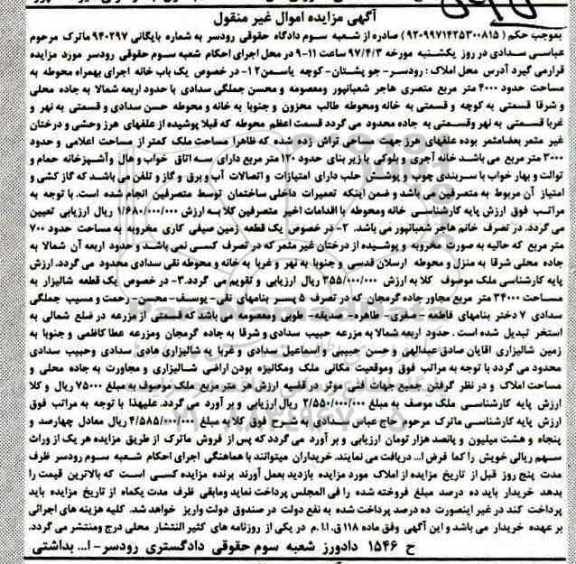 آگهی مزایده اموال غیر منقول
بموجب حکم (۹۲۰۹۹۷۱۴۲۵۳۰۰۸۱۵) صادره از شعبه سوم دادگاه حقوقی رودسر به شماره بایگانی ۹۴۰۲۹۷ ماترک مرحوم
عباسی سدادی در روز یکشنبه مورخه ۹۷/۴/۳ ساعت ۱۱-۹ در محل اجرای احکام شعبه سوم حقوقی رودسر مورد مزایده
قرارمی گیرد آدرس محل املاک : رودسر- جو پشتان- کوچه یاسمن۱۲- در خصوص یک باب خانه اجرای بهمراه محوطه به
مساحت حدود ۴۰۰۰ متر مربع متصری هاجر شعبانپور ومعصومه و محسن جملگی سدادی با حدود اربعه شمالا به جاده محلی
و شرقا قسمتی به کوچه و قسمتی به خانه ومحوطه طالب محزون و جنوبا به خانه و محوطه حسن سدادی و قسمتی به نهر و
غربا قسمتی به نهر وقسمتی به جاده محدود می گردد قسمت اعظم محوطه که قبلا پوشیده از علفهای هرز وحشی و درختان
غیر مثمر بعضامثمر بوده علفهای هرز جهت مساحی تراش زده شده که ظاهرا مساحت ملک کمتر از مساحت اعلامی و حدود
۳۰۰۰ متر مربع می باشد خانه آجری و بلوکی با زیر بنای حدود ۱۲۰ متر مربع دارای سه اتاق خواب وهال وآشپزخانه حمام و
توالت و بهار خواب با سربندی چوب و پوشش حلب دارای امتیازات و اتصالات آب و برق و گاز و تلفن می باشد که گاز کشی و
امتیاز آن مربوط به متصرفین می باشد و ضمن اینکه تعمیرات داخلی ساختمان توسط متصرفین انجام شده است. با توجه به
مراتب فوق ارزش پایه کارشناسی خانه ومحوطه با اقدامات اخیر متصرفین کلا به ارزش ۱/۶۸۰/۰۰۰/۰۰۰ ریال ارزیابی تعیین
می گردد. در تصرف خانم هاجر شعبانپور می باشد. ۲- در خصوص یک قطعه زمین صیفی کاری مخروبه به مساحت حدود ۷۰۰
متر مربع که حالیه به صورت مخروبه و پوشیده از درختان غیر مثمر که در تصرف کسی نمی باشد و حدود اربعه آن شمالا به
جاده محلی شرقا به منزل و محوطه ارسلان قدسی و جنوبا به نهر و غربا به خانه و محوطه نقی سدادی محدود می گردد. ارزش
پایه کارشناسی ملک موصوف کلا به ارزش ۳۵۵/۰۰۰/۰۰۰ ریال ارزیابی و تقویم می گردد.۳- در خصوص یک قطعه شالیزار به
مساحت ۳۴۰۰۰ متر مربع مجاور جاده گرمجان که در تصرف ۵ پسر بنامهای نقی- یوسف- محسن- رحمت و مسیب جملگی
سدادی ۷ دختر بنامهای فاطمه- صغری- طاهره- صدیقه- طوبی ومعصومه می باشد که قسمتی از مزرعه در ضلع شمالی به
استخر تبدیل شده است. حدود اربعه شمالا به مزرعه حبیب سدادی و شرقا به جاده گرمجان ومزرعه عطا کاظمی و جنوبا به
زمین شالیزاری اقایان صادق عبدالهی و حسن حبیبی و اسماعیل سدادی و غربا به شالیزاری هادی سدادی وحبیب سدادی
محدود می گردد با توجه به مراتب فوق وموقعیت مکانی ملک ومکانیزه بودن اراضی شالیزاری و مجاورت به جاده محلی و
مساحت املاک و در نظر گرفتن جمیع جهات فنی موثر در قضیه ارزش هر متر مربع ملک موصوف به مبلغ ۷۵۰۰۰ ریال و کلا
ارزش پایه کارشناسی ملک موصف به مبلغ ۲/۵۵۰/۰۰۰/۰۰۰ ریال ارزیابی و بر آورد می گردد. علیهذا با توجه به مراتب فوق
ارزش پایه کارشناسی ماترک مرحوم حاج عباس سدادی به شرح فوق کلا به مبلغ ۴/۵۸۵/۰۰۰/۰۰۰ ریال معادل چهارصد و
پنجاه و هشت میلیون و پانصد هزار تومان ارزیابی و بر آورد می گردد که پس از فروش ماترک از طریق مزایده هر یک از وراث
سهم ریالی خویش را کما فرض ا... دریافت می نمایند. خریداران میتوانند با هماهنگی اجرای احکام شعبه سوم رودسر ظرف
مدت پنج روز قبل از تاریخ مزایده از املاک مورد مزایده بازدید بعمل آورند برنده مزایده کسی است که بالاترین قیمت را
بدهد خریدار باید ده درصد مبلغ فروخته شده را فی المجلس پرداخت نماید ومابقی ظرف مدت یکماه از تاریخ مزایده باید
پرداخت کند در غیر اینصورت ده درصد پرداخت شده به نفع دولت در صندوق دولت واریز خواهد شد. کلیه هزینه های اجرائی
بر عهده خریدار می باشد و این آگهی وفق ماده ۱۱۸ ق.ا.ا.م در یکی از روزنامه های کثیر انتشار محلی درج ومنتشر می گردد.
ح ۱۵۴۶ دادورز شعبه سوم حقوقی دادگستری رودسر- ا... بداشتی